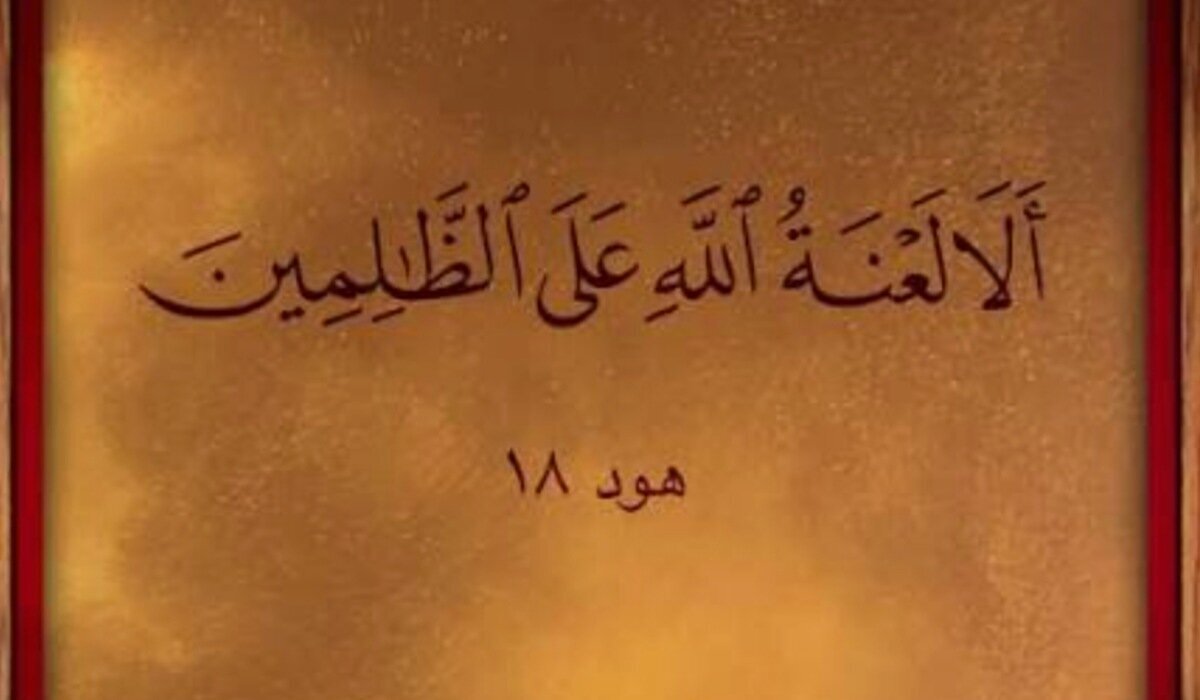 أَلَا لَعْنَةُ ٱللَّهِ عَلَى ٱلظَّٰلِمِينَ
هود ١٨